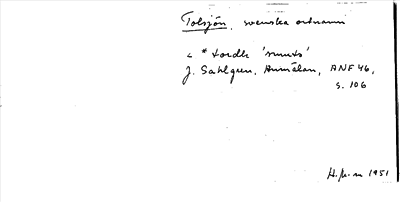 Tolsjön, svenska ortnamn
< * tordh 'smuts'
J. Sahlgren, Anmälan, ANF 46,
s. 106
1951